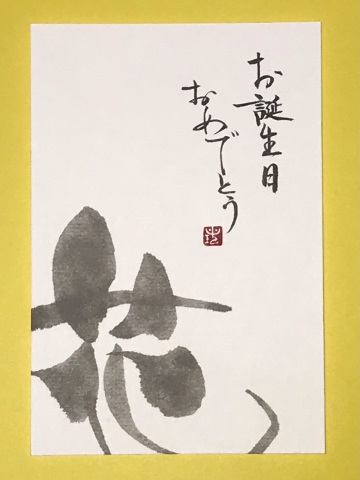 お誕生日
おめでとう
花